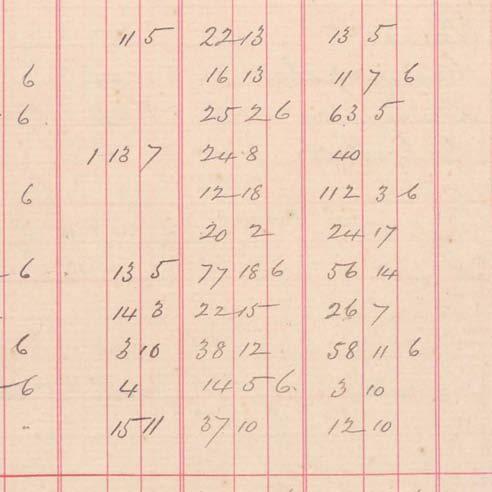 11 5 22 13 13 5
6 16 13 11 7 6
6 25 2 6 63 5
1 13 7 24 8 40
6 12 18 112 3 6
20 2 24 17
6 13 5 77 18 6 56 14
14 3 22 15 26 7
6 3 10 38 12 58 11 6
6 4 14 5 6 3 10
15 11 37 10 12 10